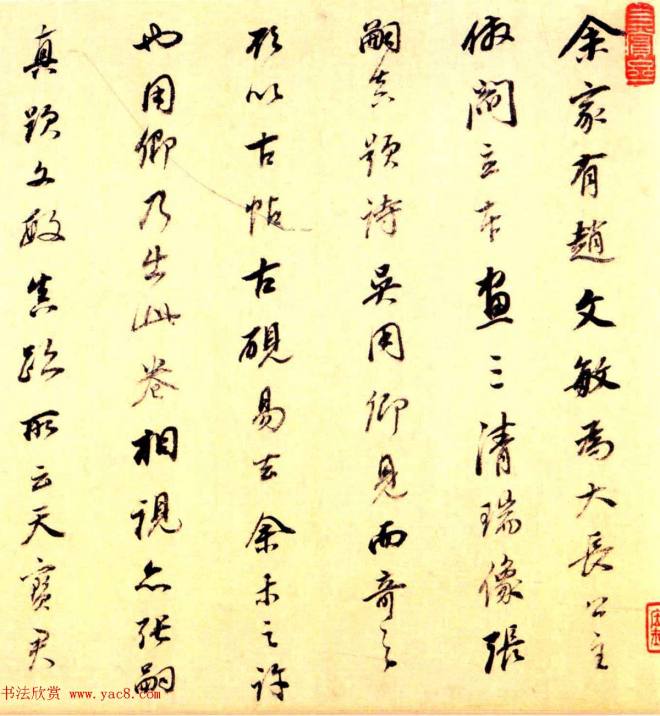 余家有趙文敏爲大長公主
倣閻立本畫三清瑞像張
嗣真題詩吳用卿見而奇之
欲以古帖古硯易去余未之許
也用卿乃出此卷相視亦張嗣
真題文敏真跡所云天寶君
书法欣赏 www.yac8.com